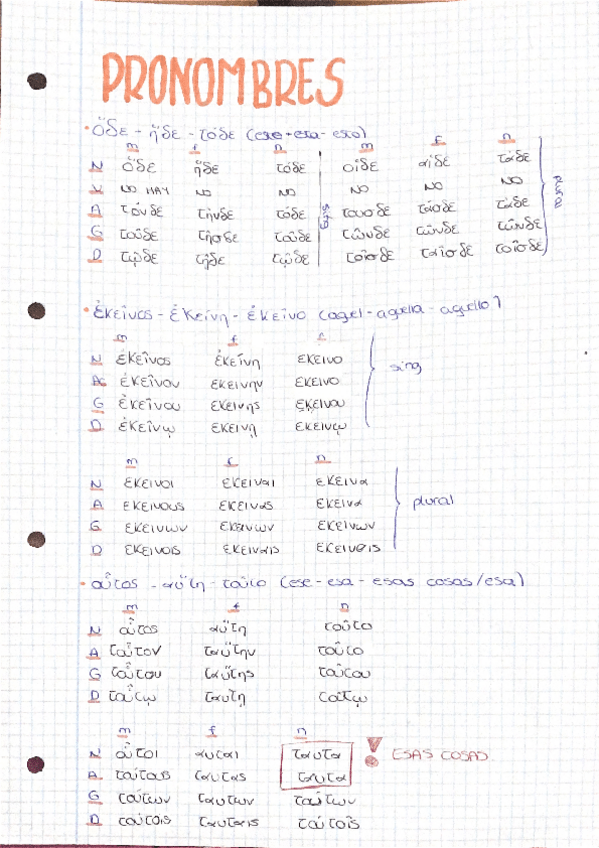 PRONOMBRES
• ὅδε - ἥδε - τόδε (ese - esa - eso)
m f n m f n
N ὅδε ἥδε τόδε οἵδε αἵδε τάδε
V NO HAY NO NO NO NO NO
A τόνδε τήνδε τόδε sing τουσδε τάσδε τάδε plural
G τοῦδε τῆσδε τοῦδε τῶνδε τῶνδε τῶνδε
D τῷδε τῇδε τῷδε τοῖσδε ταῖσδε τοῖσδε
• ἐκεῖνος - ἐκείνη - ἐκεῖνο (aquel - aquella - aquello)
m f n
N ἐκεῖνος ἐκείνη εκεινο
A ἐκεῖνον εκεινην εκεινο sing
G ἐκεῖνου εκεινης εκεινου
D ἐκεῖνῳ εκεινῃ εκεινῳ
m f n
N εκεινοι εκειναι εκεινα
A εκεινους εκεινας εκεινα plural
G εκεινων εκεινων εκεινων
D εκεινοις εκειναις εκεινοις
• αὗτος - αὕτη - ταῦτο (ese - esa - esas cosas/esa)
m f n
N αὗτος αὕτη ταῦτο
A ταὗτον ταὕτην ταῦτο
G ταὗτου ταὕτης ταῦτου
D ταὗτῳ ταυτῃ ταῦτῳ
m f n
N αὗτοι αυται ταυτα ! ESAS COSAS
A ταύτους ταυτας ταυτα
G ταύτων ταυτων ταύτων
D ταύτοις ταυταις ταύτοῖς